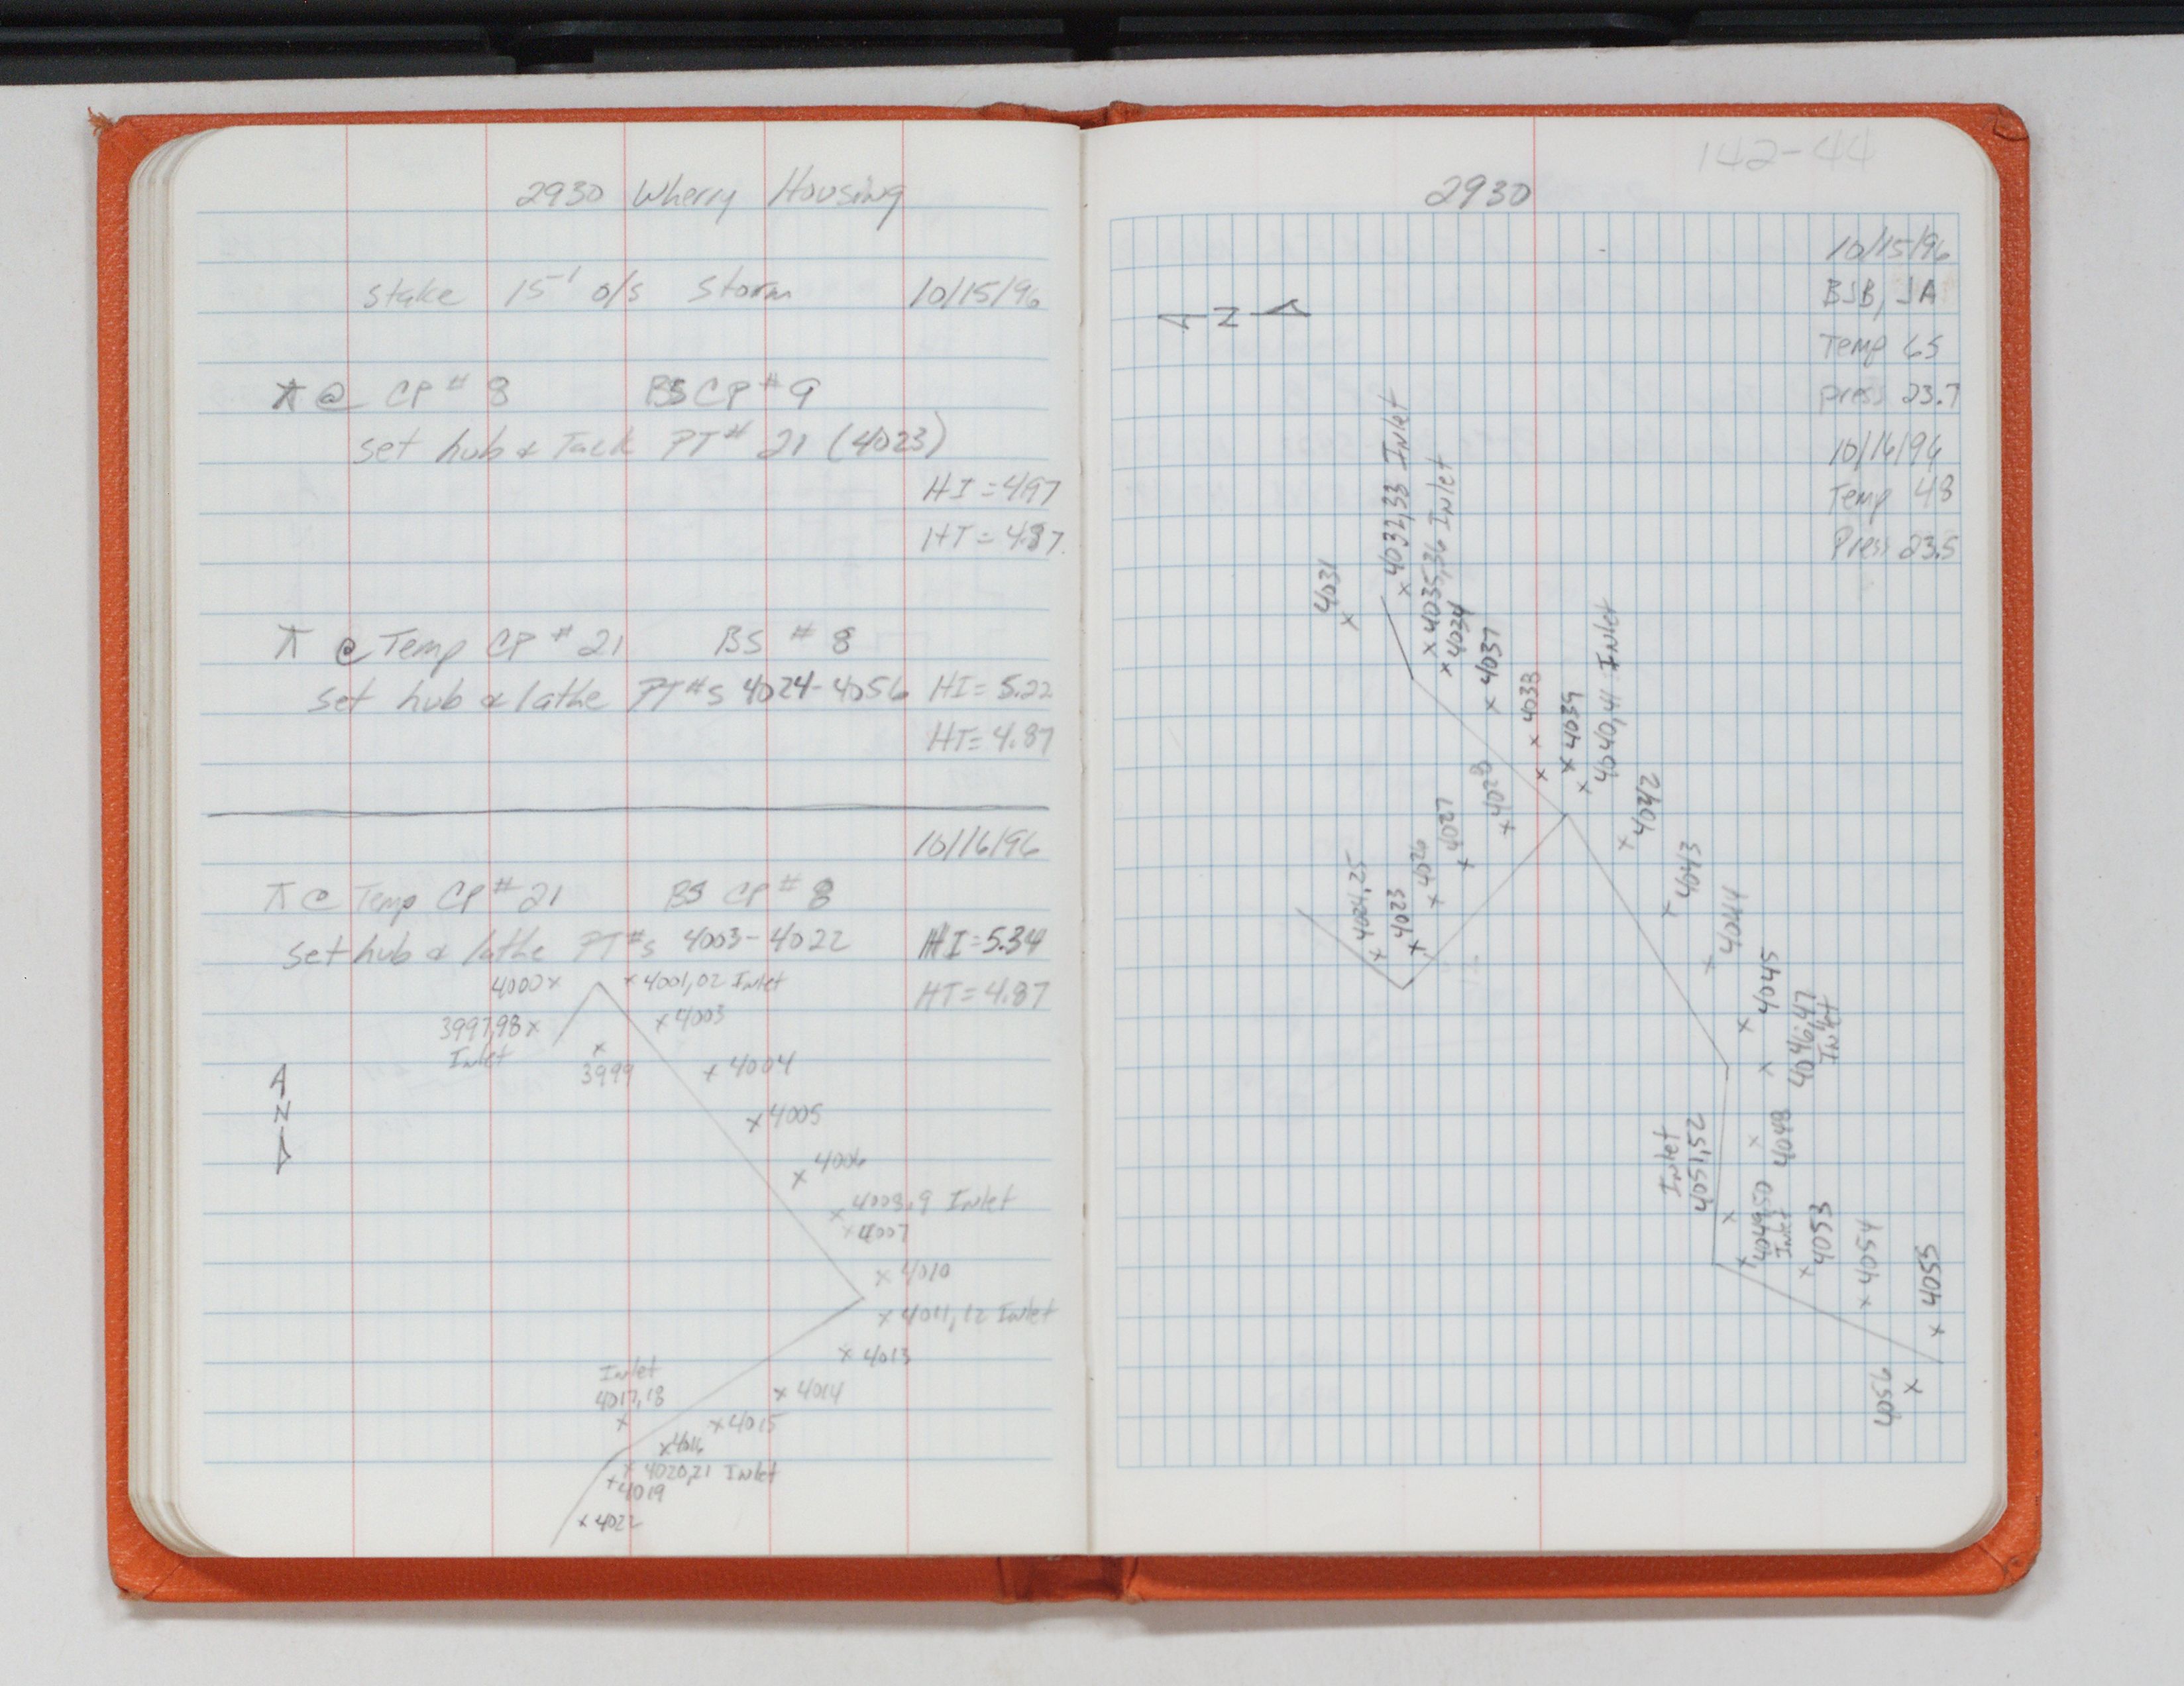 2930 Wherry Housing
stake 15' o/s storm 10/15/96
⊼ @ CP # 8 BS CP # 9
set hub & Tack PT # 21 (4023)
HI = 4.97
HT = 4.87
⊼ @ Temp CP # 21 BS # 8
set hub & lathe PT #s 4024-4056 HI = 5.22
HT = 4.87
10/16/96
⊼ @ Temp CP # 21 BS CP # 8
set hub & lathe PT #s 4003-4022 HI = 5.34
HT = 4.87
4000 x
x 4001,02 Inlet
3997,98 x
Inlet
x 4003
x
3999
x 4004
N
x 4005
x 4006
x 4008,9 Inlet
x 4007
x 4010
x 4011,12 Inlet
x 4013
Inlet
4017,18
x
x 4014
x 4015
x 4016
x 4020,21 Inlet
x 4019
x 4022
142-44
2930
10/15/96
BJB, JA
Temp 65
press 23.7
10/16/96
Temp 48
Press 23.5
N
x 4031
x 4032,33 Inlet
x 4035,36 Inlet
x 4034
x 4037
x 4038
x 4039
x 4040,41 Inlet
x 4024,25
x 4023
x 4026
x 4027
x 4028
x 4042
x 4043
x 4044
x 4045
x 4046,47
Inlet
x 4048
Inlet
4051,52
x
x 4049,50
Inlet
x 4053
x 4054
x 4055
4056
x